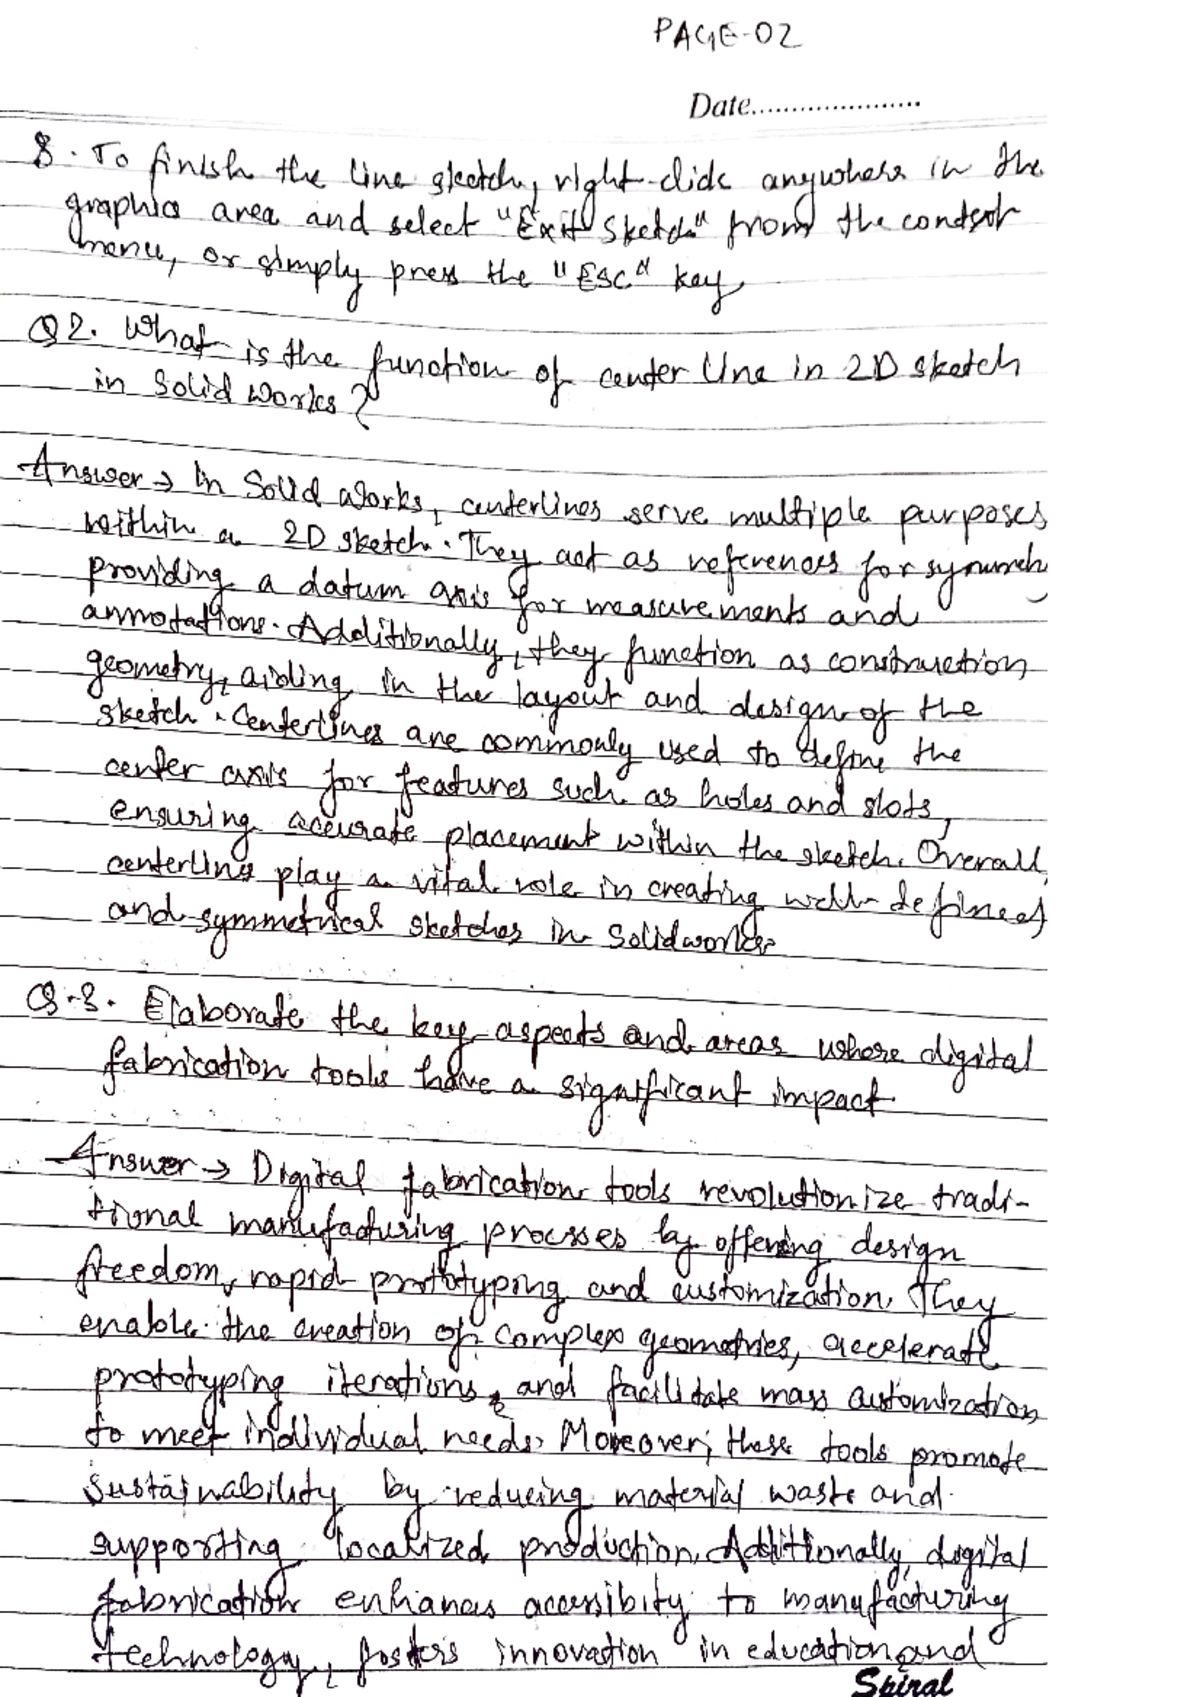 PAGE-02
Date.....................
8. To finish the line sketch, right-click anywhere in the
graphics area and select "Exit Sketch" from the context
menu, or simply press the "Esc" key
Q2. What is the function of center line in 2D sketch
in Solid Works?
Answer → In Solid Works, centerlines serve multiple purposes
within a 2D sketch. They act as references for symmetry
providing a datum axis for measurements and
annotations. Additionally, they function as construction
geometry, aiding in the layout and design of the
sketch. Centerlines are commonly used to define the
center axis for features such as holes and slots,
ensuring accurate placement within the sketch. Overall,
centerlins play a vital role in creating well-defined
and symmetrical sketches in Solidworks.
Q.3. Elaborate the key aspects and areas where digital
fabrication tools have a significant impact.
Answer → Digital fabrication tools revolutionize tradi-
tional manufacturing processes by offering design
freedom, rapid prototyping and customization. They
enable the creation of complex geometries, accelerate
prototyping iterations, and facilitate mass customization
to meet individual needs. Moreover, these tools promote
sustainability by reducing material waste and
supporting localized production. Additionally, digital
fabrication enhances accessibity to manufacturing
technology, fosters innovation in education and
Spiral